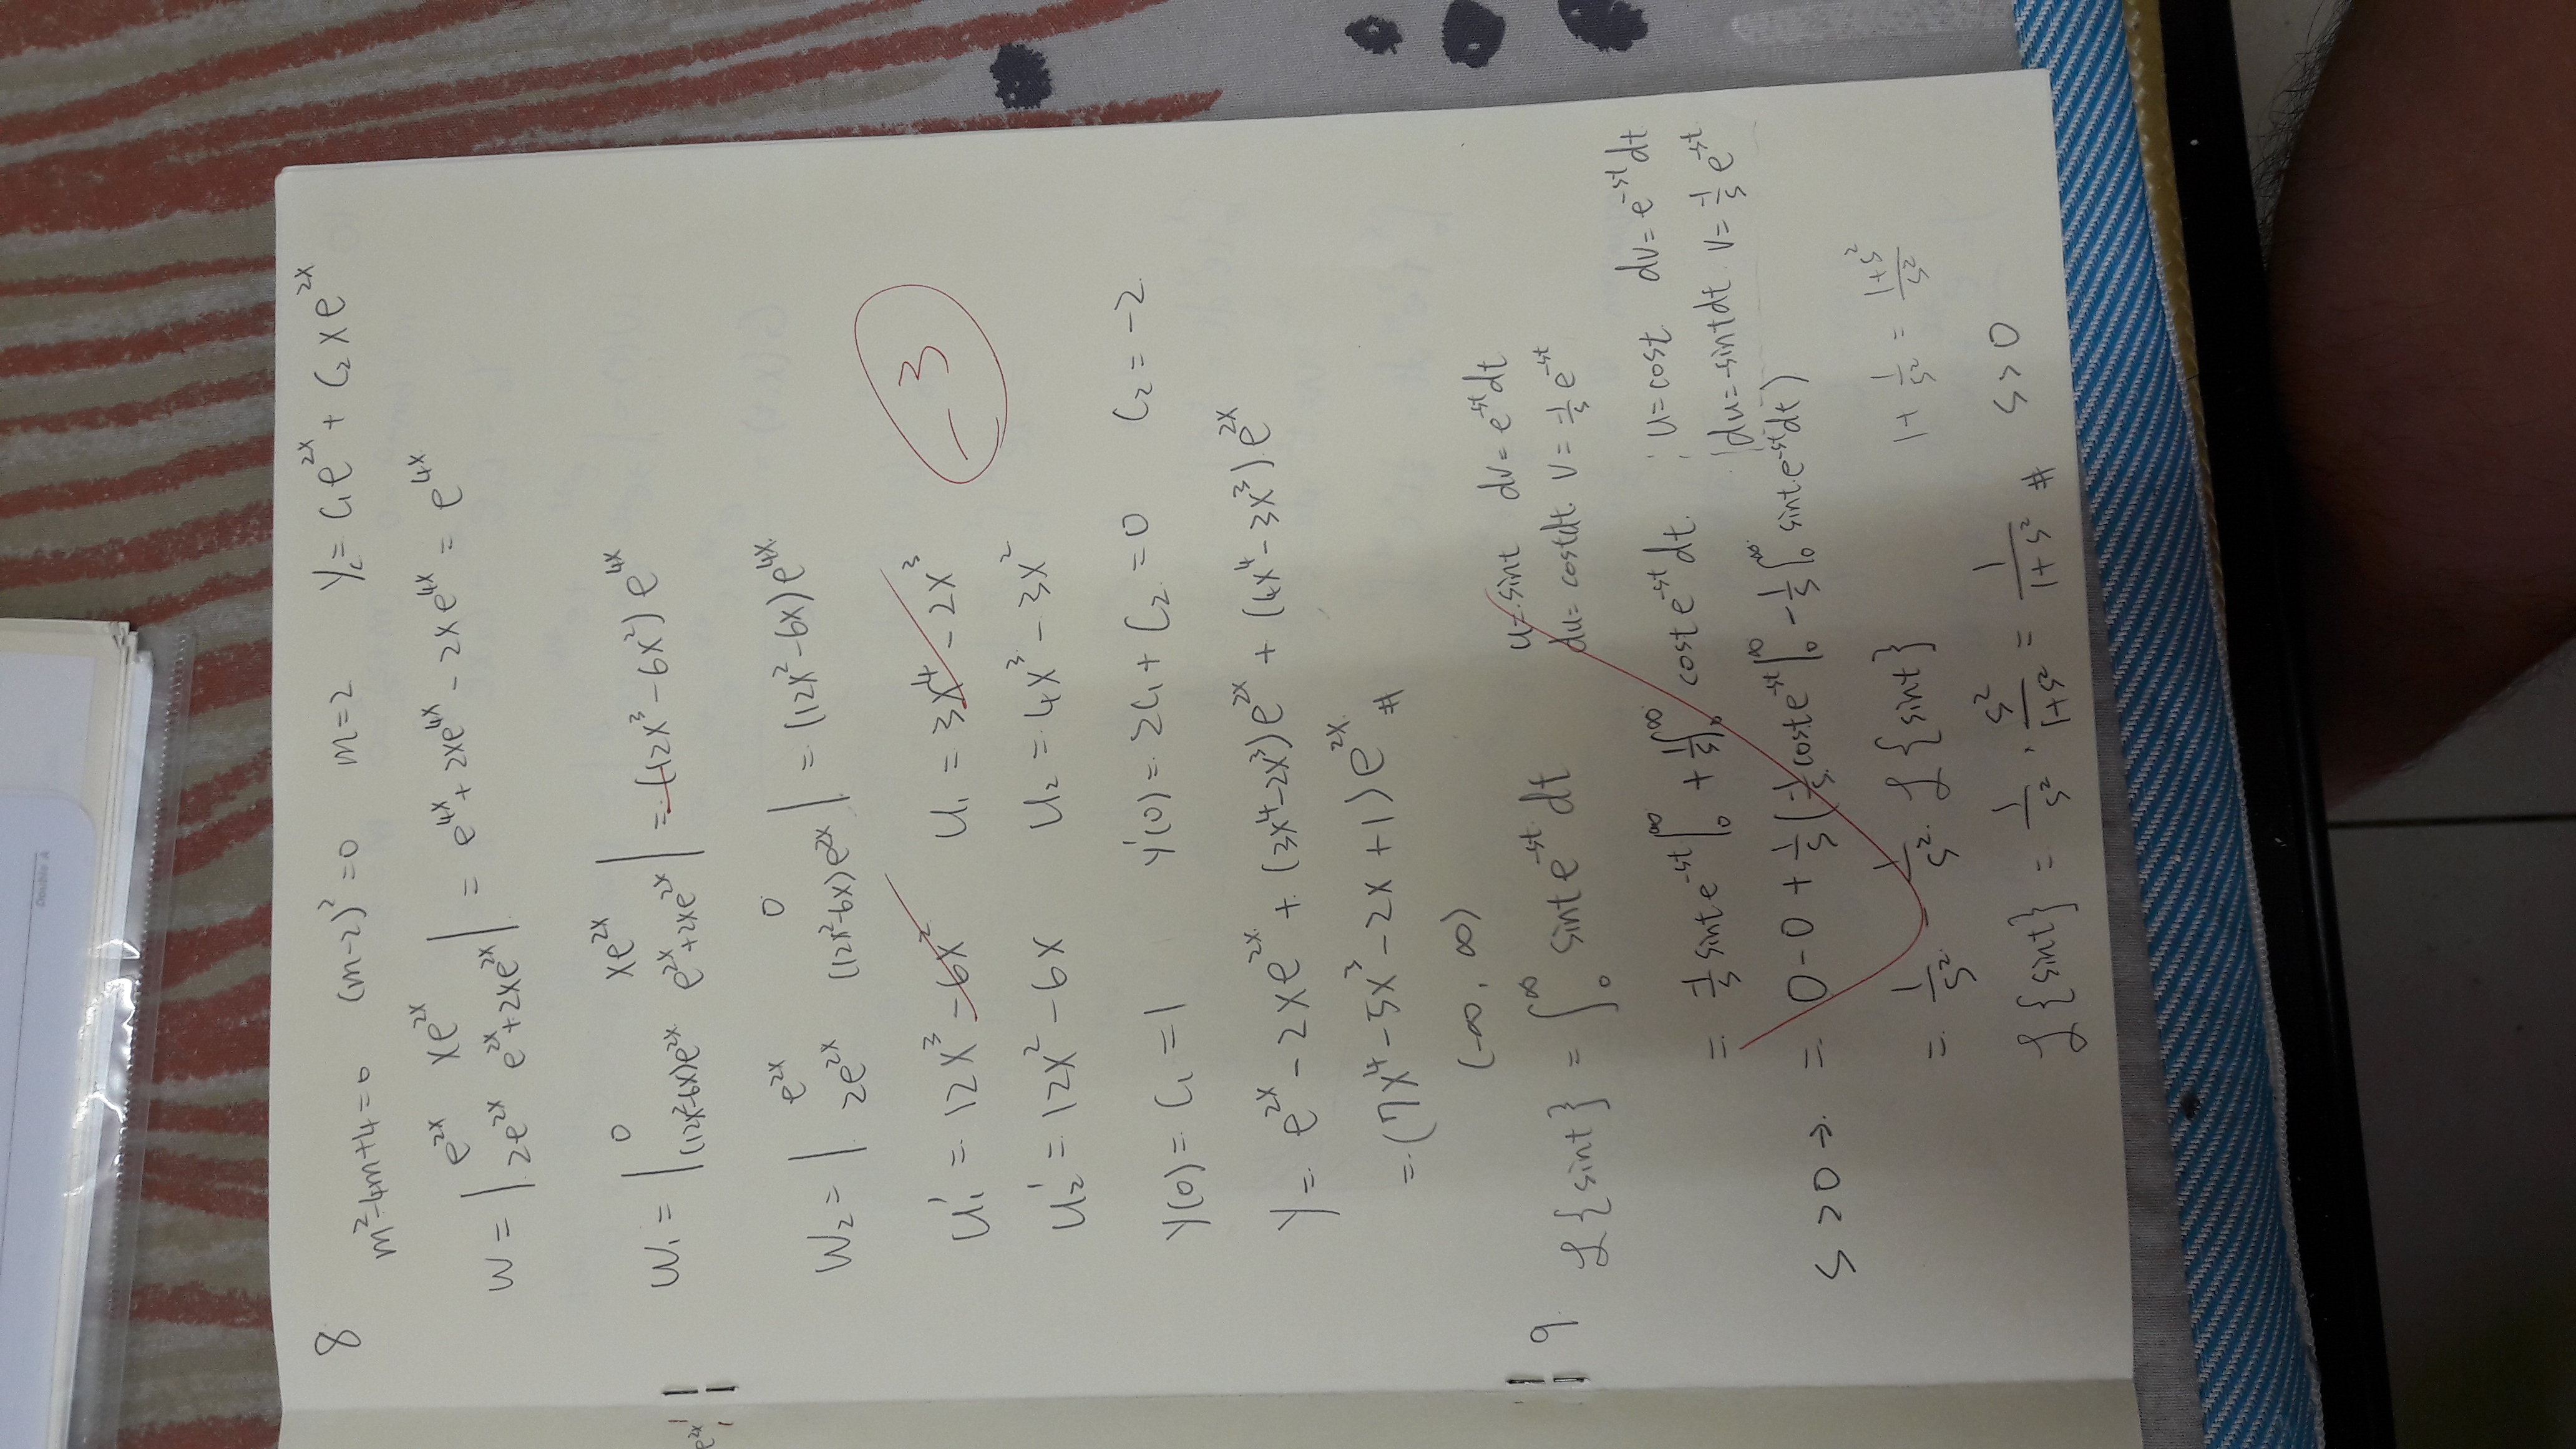 Double A
8
m²-4m+4=0 (m-2)²=0 m=2 Yc= C₁e^{2x} + C₂xe^{2x}
W = | e^{2x} xe^{2x} ; 2e^{2x} e^{2x}+2xe^{2x} | = e^{4x}+2xe^{4x} - 2xe^{4x} = e^{4x}
W₁ = | 0 xe^{2x} ; (12x²-6x)e^{2x} e^{2x}+2xe^{2x} | = -(12x³-6x²)e^{4x}
W₂ = | e^{2x} 0 ; 2e^{2x} (12x²-6x)e^{2x} | = (12x²-6x)e^{4x}
u₁' = 12x³-6x² u₁ = 3x⁴-2x³ -3
u₂' = 12x²-6x u₂ = 4x³-3x²
y(0) = C₁ = 1 y'(0) = 2C₁ + C₂ = 0 C₂ = -2
y = e^{2x} - 2xe^{2x} + (3x⁴-2x³)e^{2x} + (4x⁴-3x³)e^{2x}
= (7x⁴-5x³-2x+1)e^{2x} #
(-∞, ∞)
9. ℒ{sint} = ∫₀^∞ sint e^{-st} dt u=sint dv=e^{-st}dt
du=costdt v=-1/s e^{-st}
= -1/s sint e^{-st} |₀^∞ + 1/s ∫₀^∞ cost e^{-st} dt u=cost dv=e^{-st}dt
du=-sintdt v=-1/s e^{-st}
s>0 → = 0-0 + 1/s (-1/s cost e^{-st} |₀^∞ - 1/s ∫₀^∞ sint e^{-st} dt)
= 1/s² - 1/s² ℒ{sint} 1+1/s² = (1+s²)/s²
ℒ{sint} = 1/s² · s²/(1+s²) = 1/(1+s²) # s>0
e^{2x}